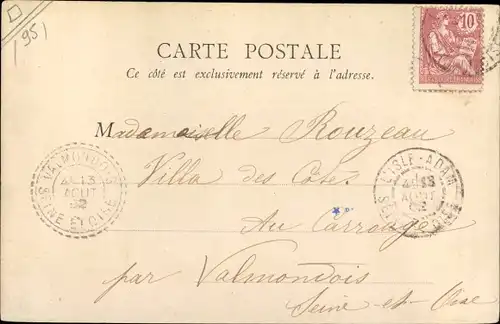 1951
10
CARTE POSTALE
Ce côté est exclusivement réservé à l'adresse.
Mademoiselle Rouzeau
Villa des Côtes
Au Carrouge
par Valmondois
Seine-et-Oise
VALMONDOIS
13
AOUT
02
SEINE ET OISE
L'ISLE-ADAM
AOUT
02